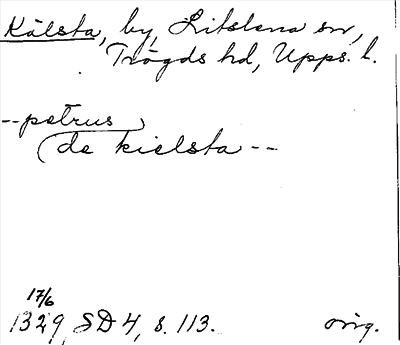 Kälsta, by, Litslena sn,
Trögds hd, Upps. l.
--petrus
de kielsta--
17/6
1329, SD 4, s. 113. orig.